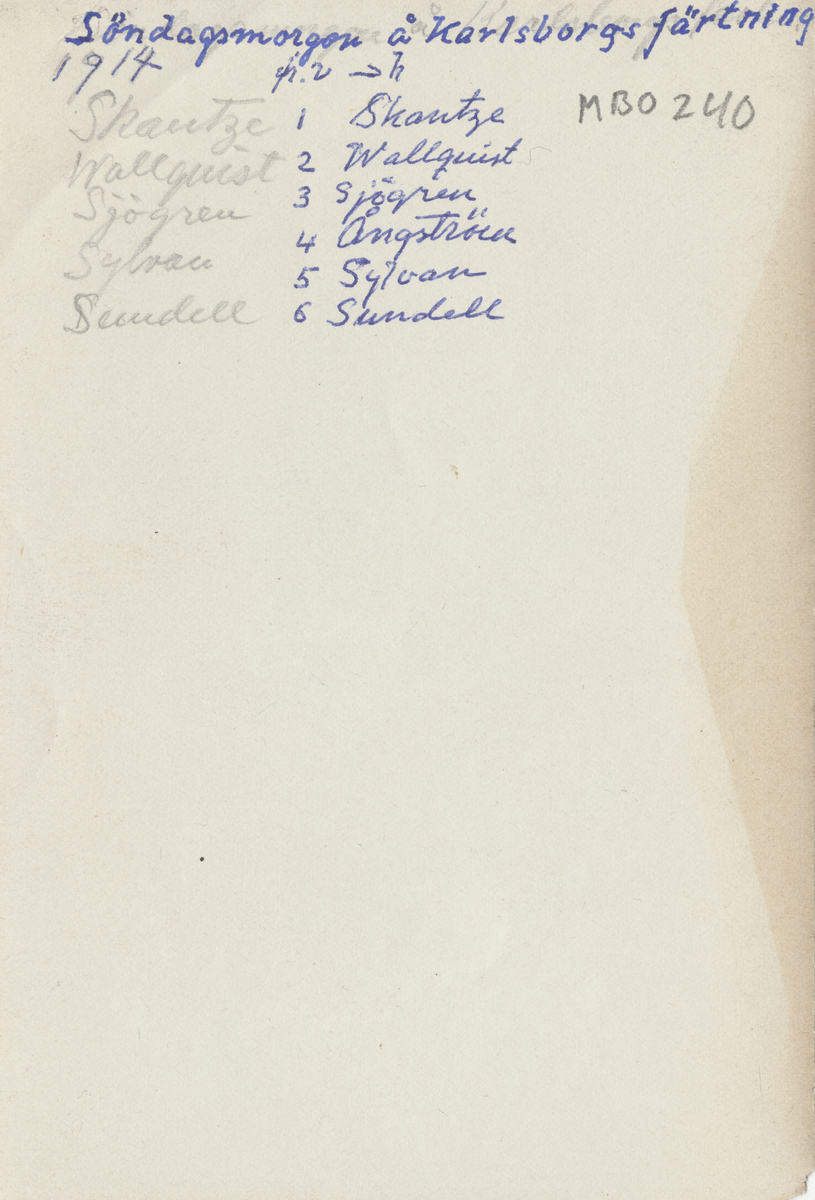 Söndagsmorgon å Karlsborgs färtning
1914 fr. v → h
MBO 240
Skantze 1 Skantze
Wallquist 2 Wallquist
Sjögren 3 Sjögren
4 Ångström
Sylvan 5 Sylvan
Sundell 6 Sundell